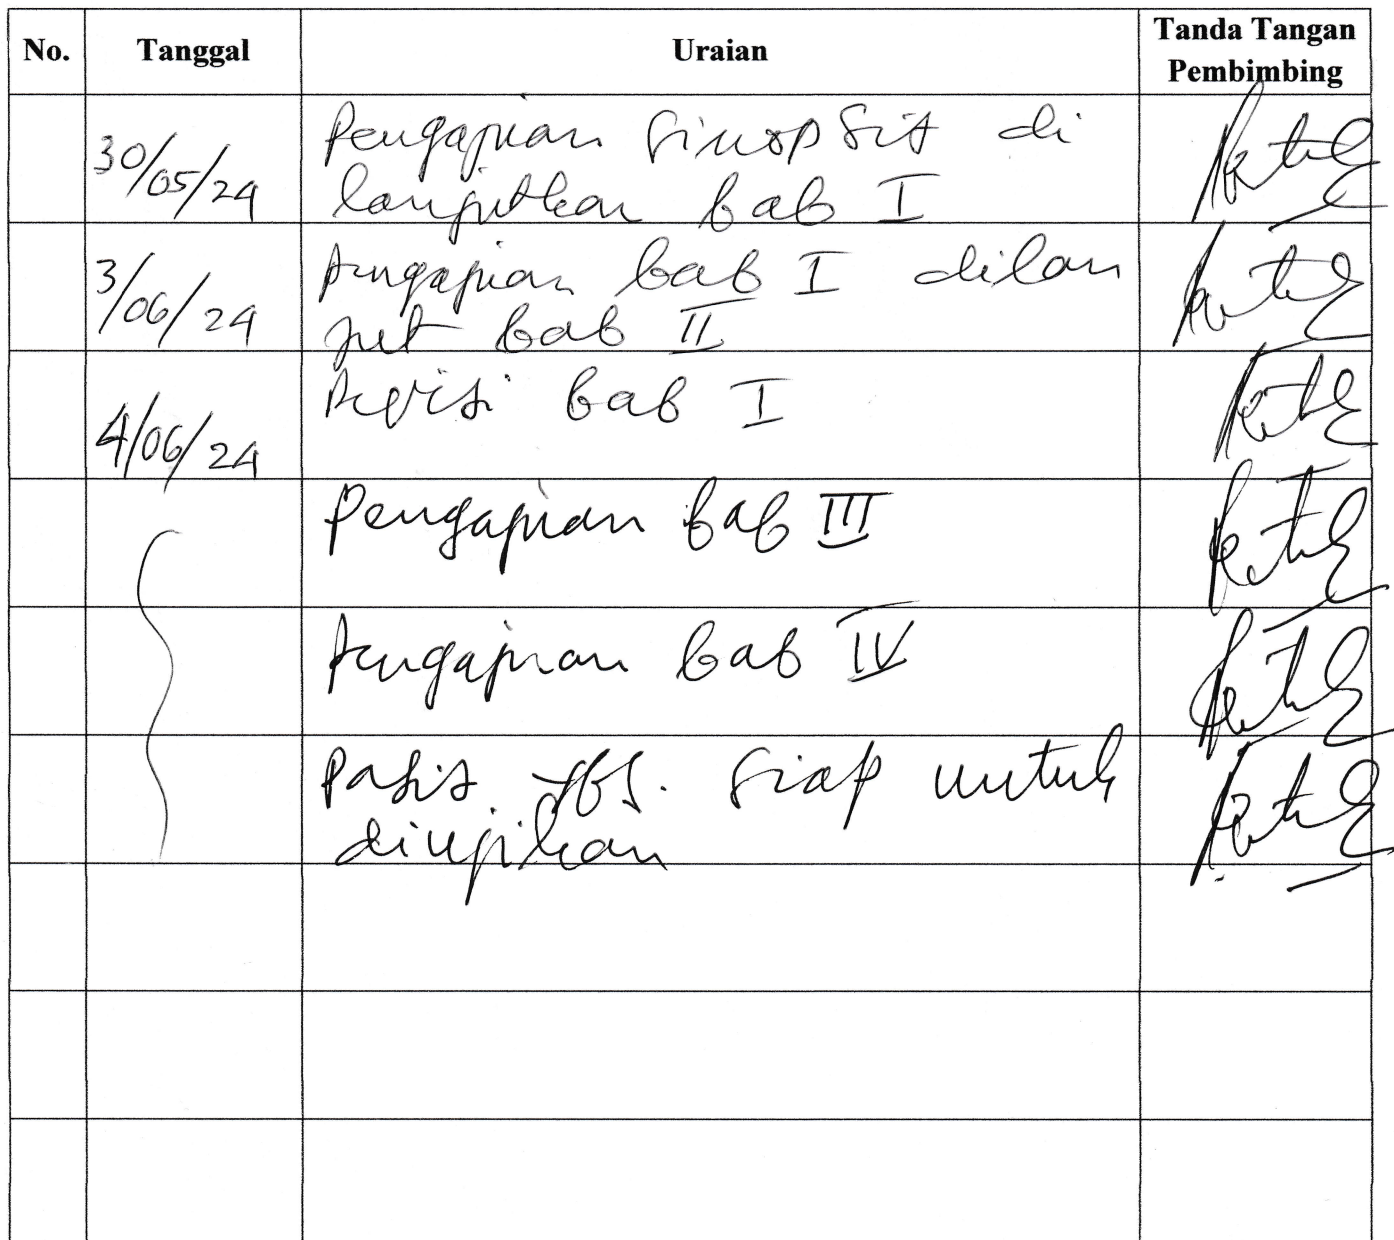 No. Tanggal Uraian Tanda Tangan
Pembimbing
30/05/24 Pengajuan Sinopsis di
lanjutkan bab I
3/06/24 Pengajuan bab I dilan
jut bab II
4/06/24 Revisi bab I
Pengajuan bab III
Pengajuan bab IV
Pasis ybs. Siap untuk
diujikan